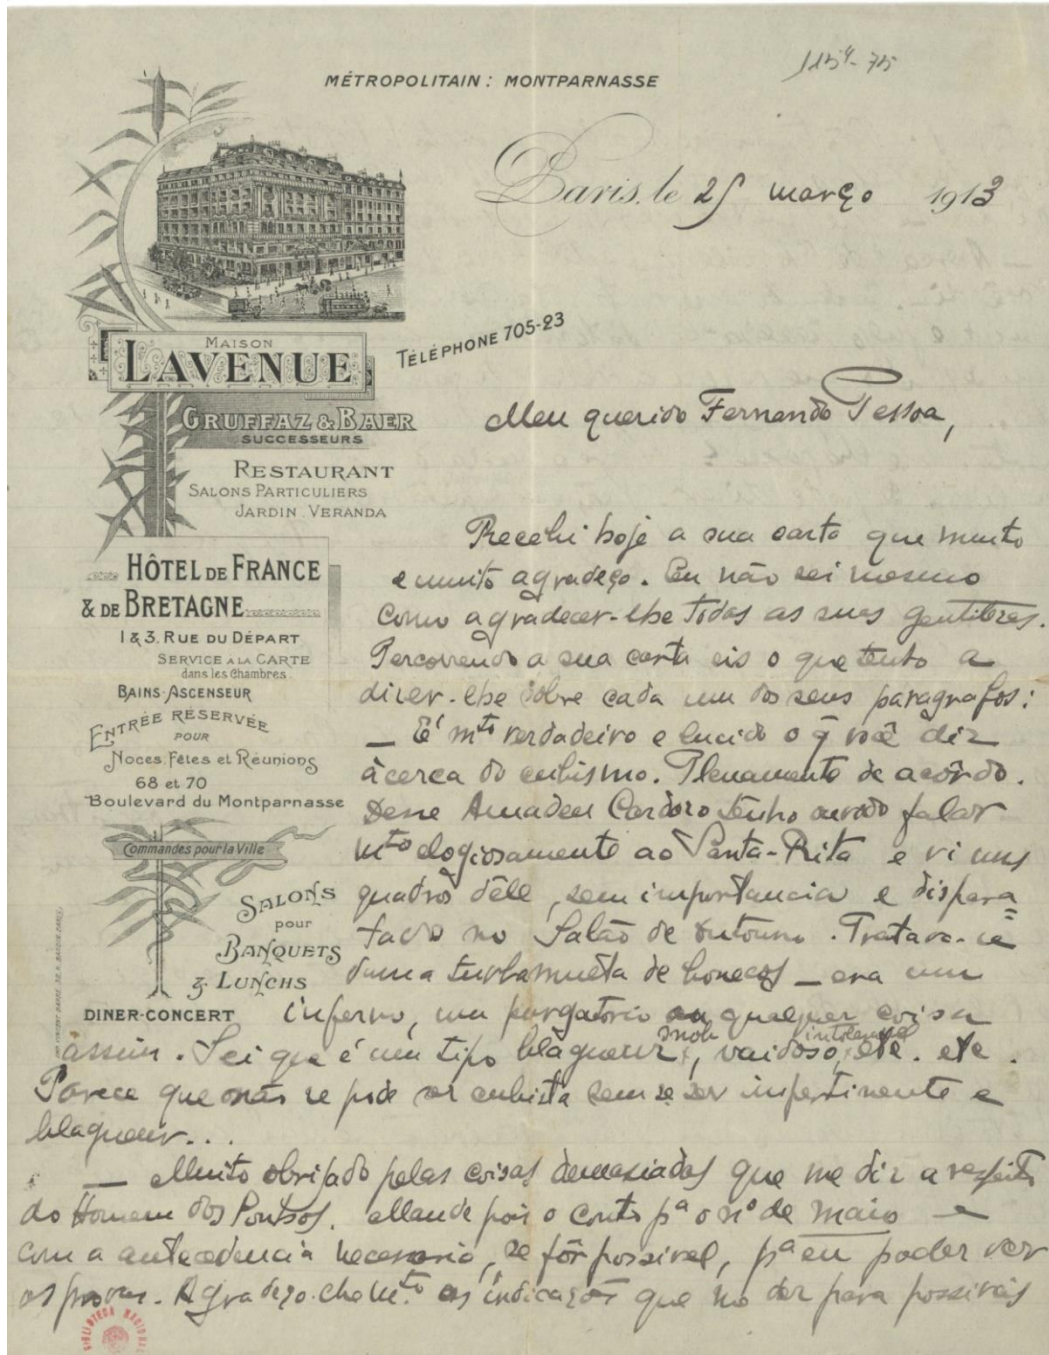 115⁴-715
MÉTROPOLITAIN: MONTPARNASSE
Paris, le 25 março 1913
MAISON
LAVENUE
TÉLÉPHONE 705-23
GRUFFAZ & BAER
SUCCESSEURS
RESTAURANT
SALONS PARTICULIERS
JARDIN. VERANDA
HÔTEL DE FRANCE
& DE BRETAGNE
1 & 3. RUE DU DÉPART
SERVICE A LA CARTE
dans les Chambres
BAINS-ASCENSEUR
ENTRÉE RÉSERVÉE
POUR
Noces, Fêtes et Réunions
68 et 70
Boulevard du Montparnasse
Commandes pour la Ville
SALONS
pour
BANQUETS
& LUNCHS
DINER-CONCERT
Meu querido Fernando Pessoa,
Recebi hoje a sua carta que muito
e muito agradeço. Eu não sei mesmo
como agradecer-lhe todas as suas gentilezas.
Percorrendo a sua carta eis o que tenho a
dizer-lhe sobre cada um dos seus paragrafos:
— É mto verdadeiro e lucido o q̃ você diz
ácerca do cubismo. Plenamente de acôrdo.
Desse Amadeu Cardozo tenho ouvido falar
mto elogiosamente ao Santa-Rita e vi uns
quadros dêle, sem importancia e dispara=
tados no Salão de Outouno. Tratava-se
duma turbamulta de bonecos — era um
inferno, um purgatorio ou qualquer coisa
assim. Sei que é um tipo blagueur, snob, vaidoso, intoleravel etc. etc.
Parece que não se pode ser cubista sem se ser impertinente e
blagueur...
— Muito obrigado pelas coisas demasiadas que me diz a respeito
do Homem dos Sonhos. Mande pois o conto pª o nº de maio e
com a antecedencia necessaria, se fôr possivel, pª eu poder ver
as provas. Agradeço-lhe m.to as indicações que me dá para possiveis
BIBLIOTECA NACIONAL